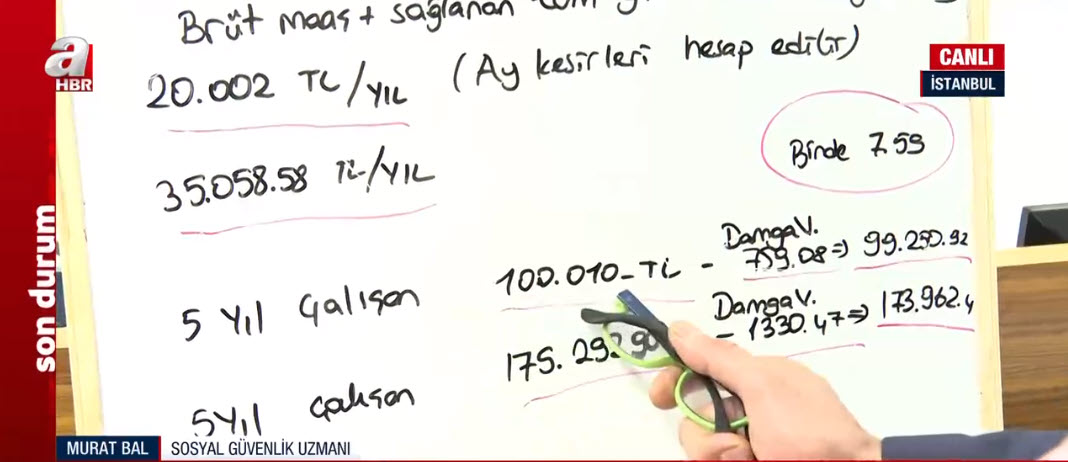 Brüt maaş + sağlanan tüm
20.002 TL/YIL (Ay kesirleri hesap edilir)
35.058.58 TL/YIL
Binde 7.59
5 Yıl çalışan 100.010-TL - DamgaV. 759.08 => 99.250.92
5 Yıl çalışan 175.292.90 - DamgaV. 1330.47 => 173.962.4
a
HBR
CANLI
İSTANBUL
son durum
MURAT BAL SOSYAL GÜVENLİK UZMANI